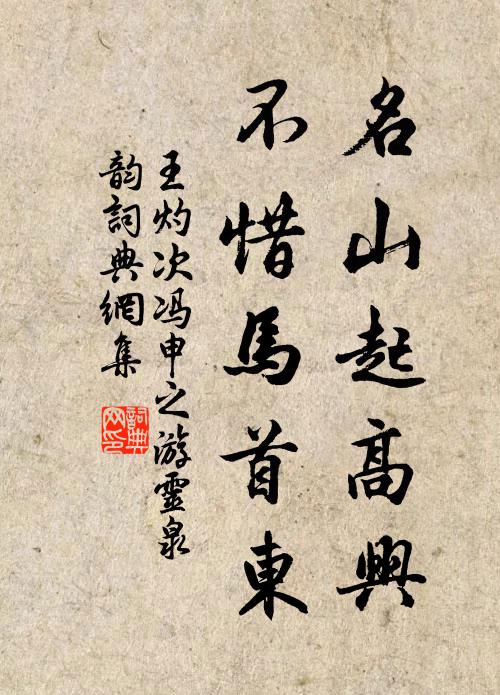 名山起高興
不惜馬首東
王灼次馮申之游靈泉
韵詞典網集
詞典網印